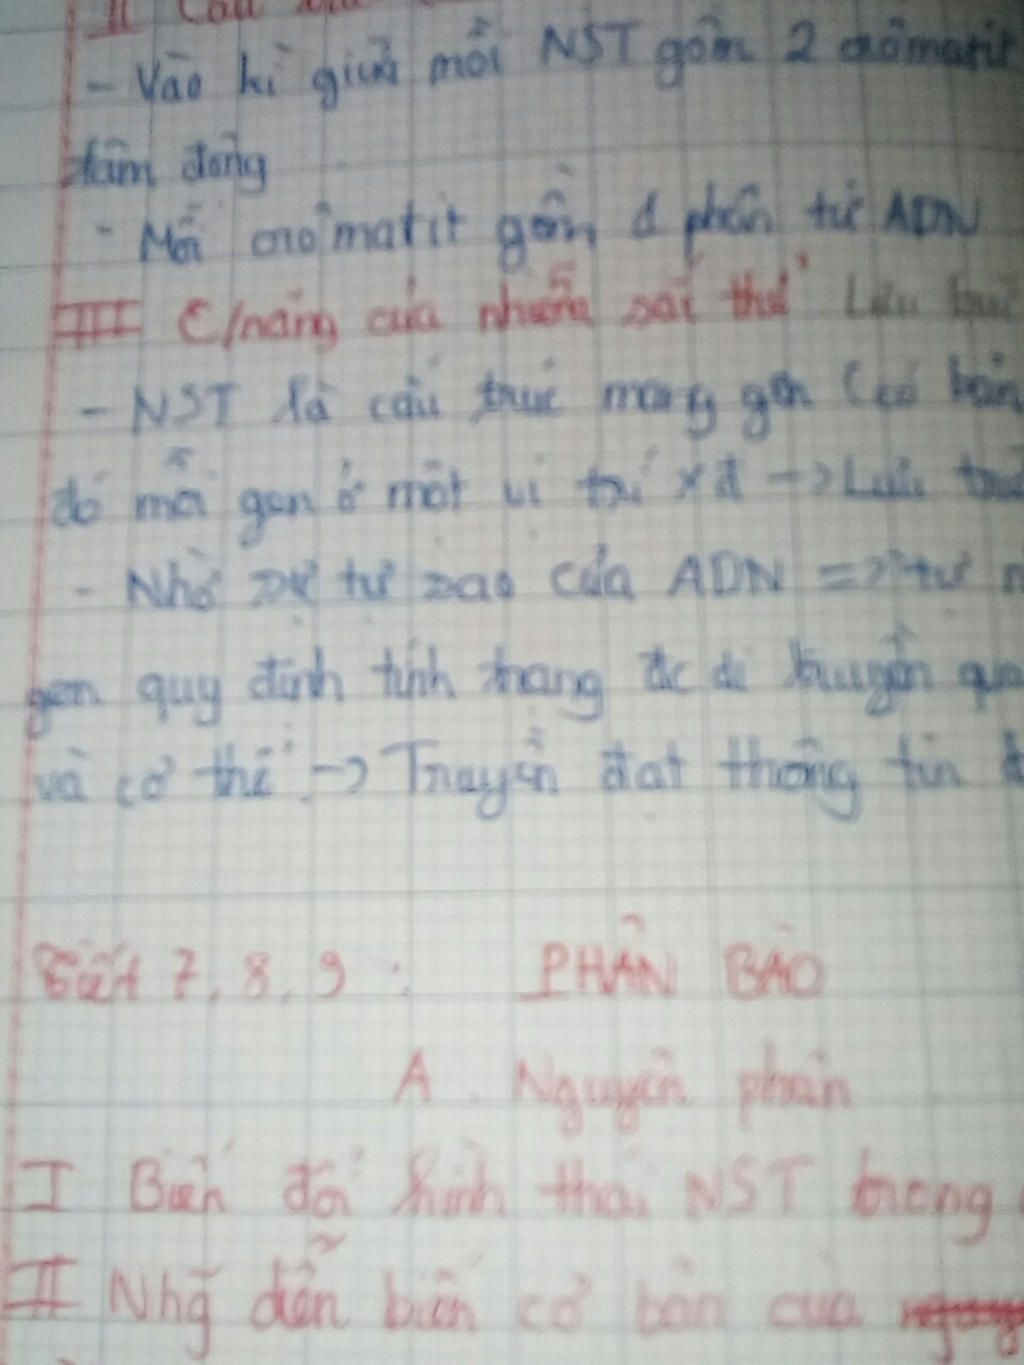 II Cấu
- Vào kì giữa mỗi NST gồm 2 crômatit
tâm động
- Mỗi crômatit gồm 1 phân tử ADN
III C/năng của nhiễm sắc thể Lưu
- NST là cấu trúc mang gen (có bản
đó mỗi gen ở một vị trí xđ -> Lưu
- Nhờ sự tự sao của ADN => tự
gen quy định tính trạng đc di truyền qua
và cơ thể -> Truyền đạt thông tin
Tiết 7, 8, 9 : PHÂN BÀO
A. Nguyên phân
I Biến đổi hình thái NST trong
II Nhg diễn biến cơ bản của